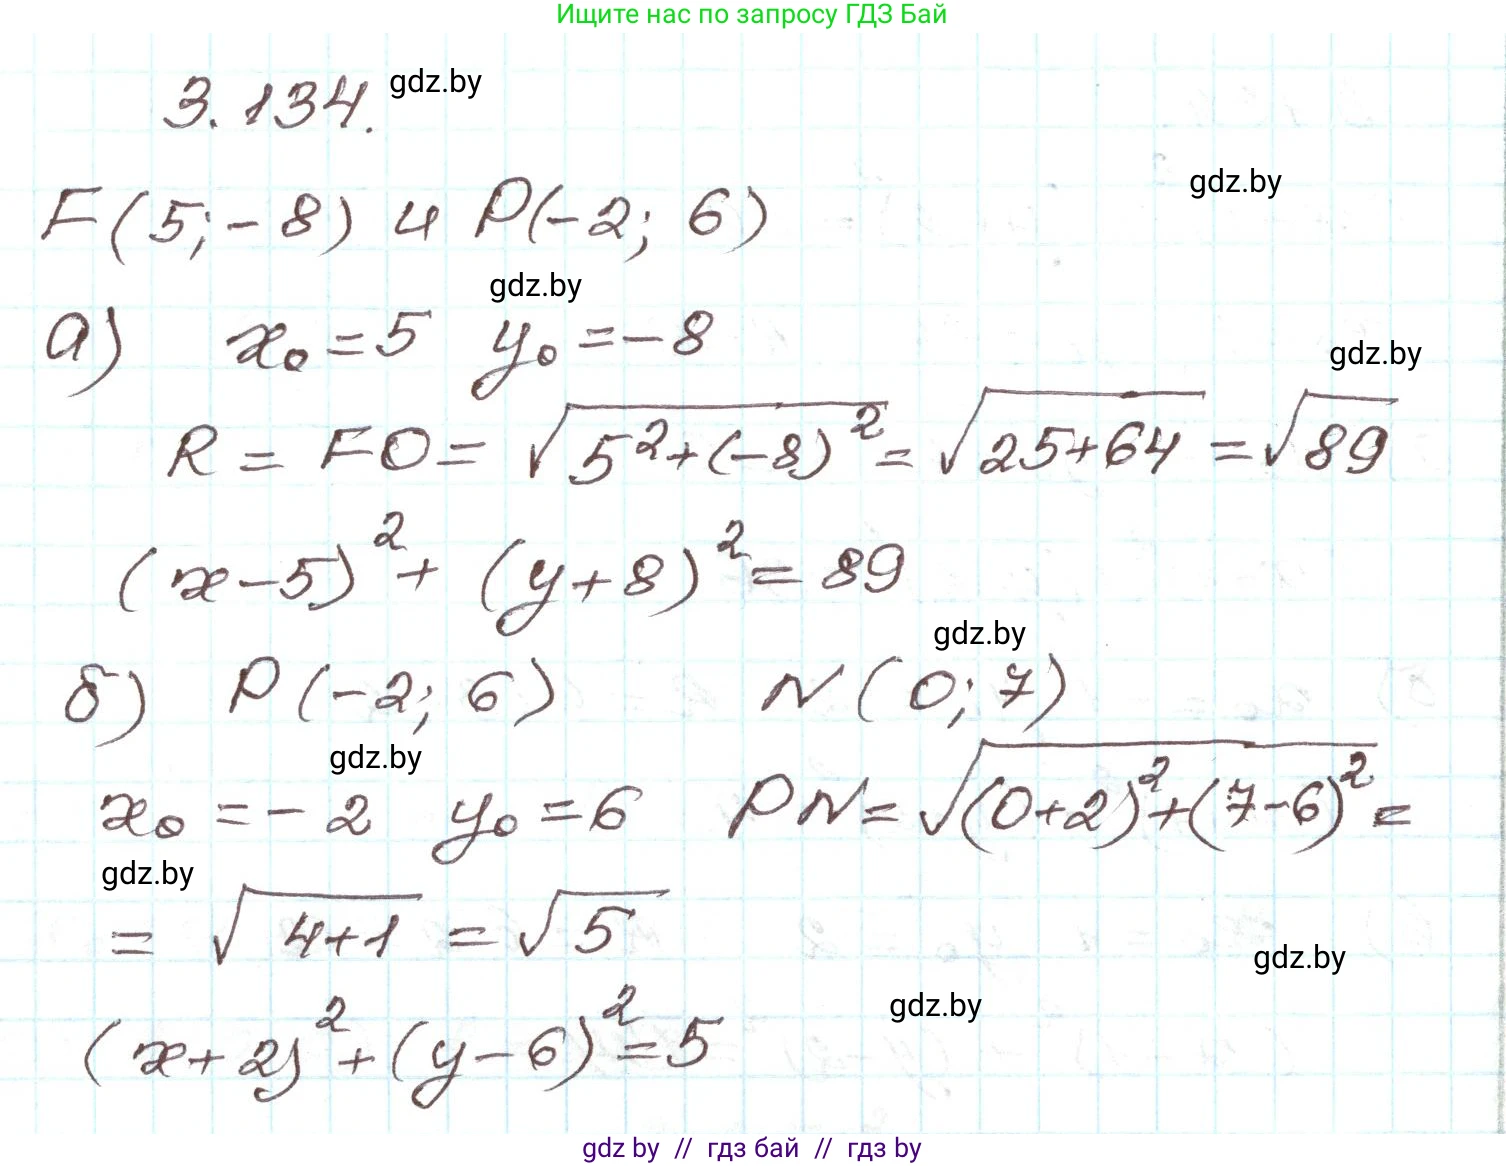 Ищите нас по запросу ГДЗ Бай
3.134.
gdz.by
gdz.by
F(5;-8) и P(-2; 6)
gdz.by
а) x₀=5 y₀=-8
gdz.by
R = FO = √(5²+(-8)²) = √(25+64) = √89
(x-5)² + (y+8)² = 89
gdz.by
б) P(-2; 6) N(0; 7)
gdz.by
x₀=-2 y₀=6 PN = √((0+2)²+(7-6)²) =
gdz.by
= √(4+1) = √5
gdz.by
gdz.by
(x+2)²+(y-6)²=5
gdz by // гдз бай // гдз by